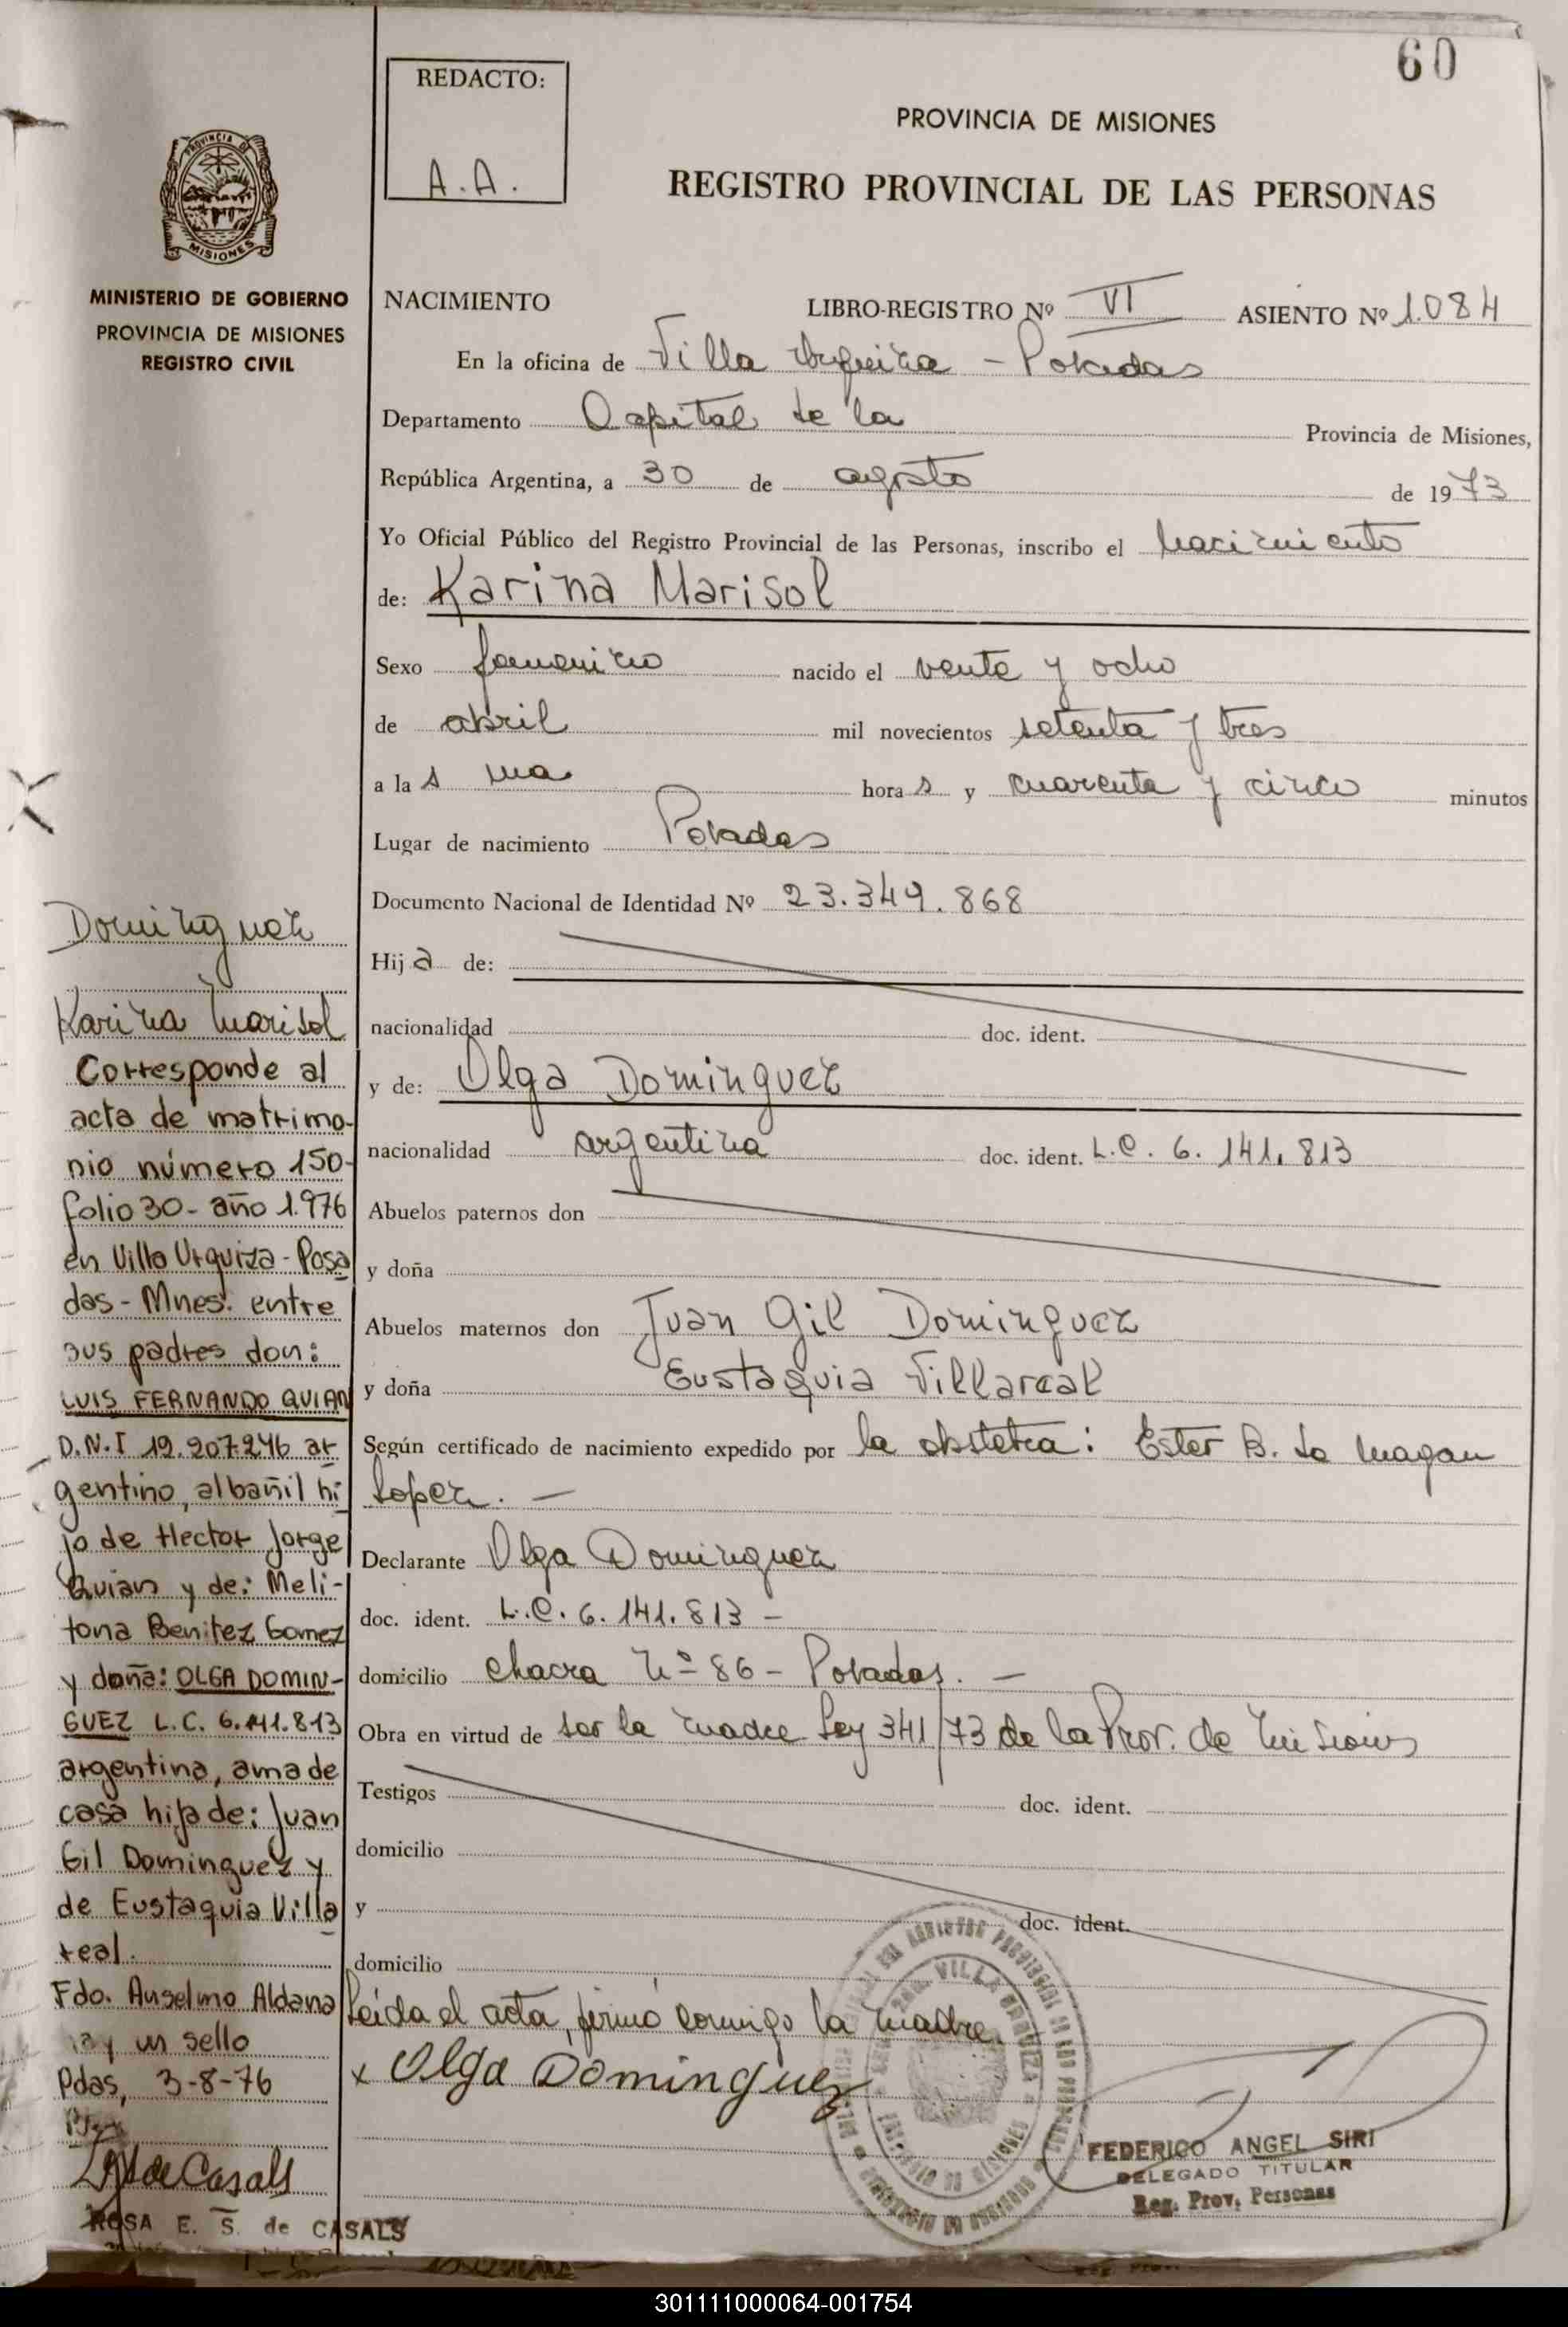 60
REDACTO:
A.A.
PROVINCIA DE MISIONES
REGISTRO PROVINCIAL DE LAS PERSONAS
PROVINCIA DE
MISIONES
MINISTERIO DE GOBIERNO
PROVINCIA DE MISIONES
REGISTRO CIVIL
NACIMIENTO LIBRO-REGISTRO Nº VI ASIENTO Nº 1.084
En la oficina de Villa Urquiza - Posadas
Departamento Capital de la Provincia de Misiones,
República Argentina, a 30 de agosto de 1973
Yo Oficial Público del Registro Provincial de las Personas, inscribo el Nacimiento
de: Karina Marisol
Sexo femenino nacido el vente y ocho
de abril mil novecientos setenta y tres
a las una horas y cuarenta y cinco minutos
Lugar de nacimiento Posadas
Documento Nacional de Identidad Nº 23.349.868
Hija de:
nacionalidad doc. ident.
y de: Olga Dominguez
nacionalidad argentina doc. ident. L.C. 6.141.813
Abuelos paternos don
y doña
Abuelos maternos don Juan Gil Dominguez
y doña Eustaquia Villareal
Según certificado de nacimiento expedido por la obstetra: Ester B. de Magan
Lopez. -
Declarante Olga Dominguez
doc. ident. L.C. 6.141.813 -
domicilio Chacra Nº 86 - Posadas. -
Obra en virtud de ser la madre Ley 341/73 de la Prov. de Misiones
Testigos doc. ident.
domicilio
y doc. ident.
domicilio
Leída el acta, firmó conmigo la madre.
x Olga Dominguez
FEDERICO ANGEL SIRI
DELEGADO TITULAR
Reg. Prov. Personas
Dominguez
Karina Marisol
Corresponde al
acta de matrimo-
nio número 150-
folio 30- año 1.976
en Villa Urquiza - Posa
das - Mnes. entre
sus padres don:
LUIS FERNANDO QUIAN
D.N.I 12.207.246 ar
gentino, albañil hi
jo de Hector Jorge
Quian y de: Meli-
tona Benitez Gomez
y doña: OLGA DOMIN-
GUEZ L.C. 6.141.813
argentina, ama de
casa hija de: Juan
Gil Dominguez y
de Eustaquia Villa
real.
Fdo. Anselmo Aldana
hay un sello
Pdas, 3-8-76
de Casals
ROSA E. S. de CASALS
301111000064-001754